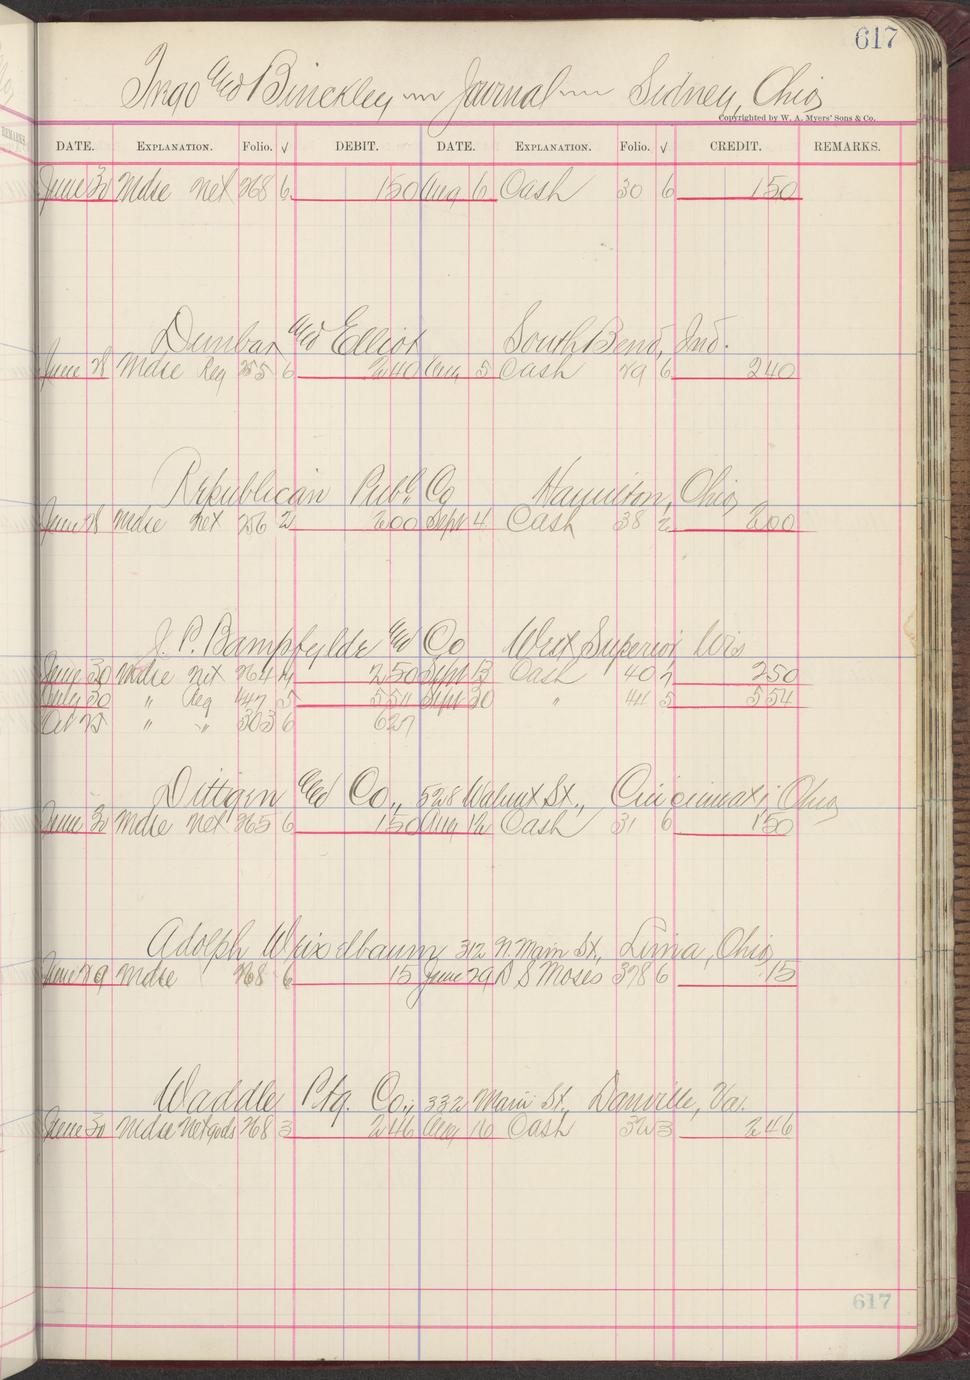 617
Ingo and Binckley Journal Sidney, Ohio
Copyrighted by W. A. Myers' Sons & Co.
REMARKS
DATE. EXPLANATION. Folio. √ DEBIT. DATE. EXPLANATION. Folio. √ CREDIT. REMARKS.
June 30 Mdse net 268 6 150 Aug 6 Cash 30 6 150
Dunbar and Elliot South Bend, Ind.
June 28 Mdse Reg 255 6 240 Aug 5 Cash 29 6 240
Republican Publ. Co Hamilton, Ohio
June 28 Mdse net 256 2 200 Sept 4 Cash 38 2 200
J. P. Bampfylde and Co West Superior Wis
June 30 Mdse net 264 250 Sept 13 Cash 40 250
July 30 " Reg 147 5 554 Sept 30 " 44 5 554
Oct 25 " " 303 6 627
Dittgen and Co., 528 Walnut St., Cincinnati, Ohio
June 30 Mdse net 265 6 150 Aug 12 Cash 31 6 150
Adolph Weixelbaum 312 N. Main St., Lima, Ohio
June 29 Mdse 268 6 15 June 29 S Moses 378 6 15
Waddle Ptg. Co., 332 Main St., Danville, Va.
June 30 Mdse Net gods 268 3 246 Aug 16 Cash 32 3 246
617